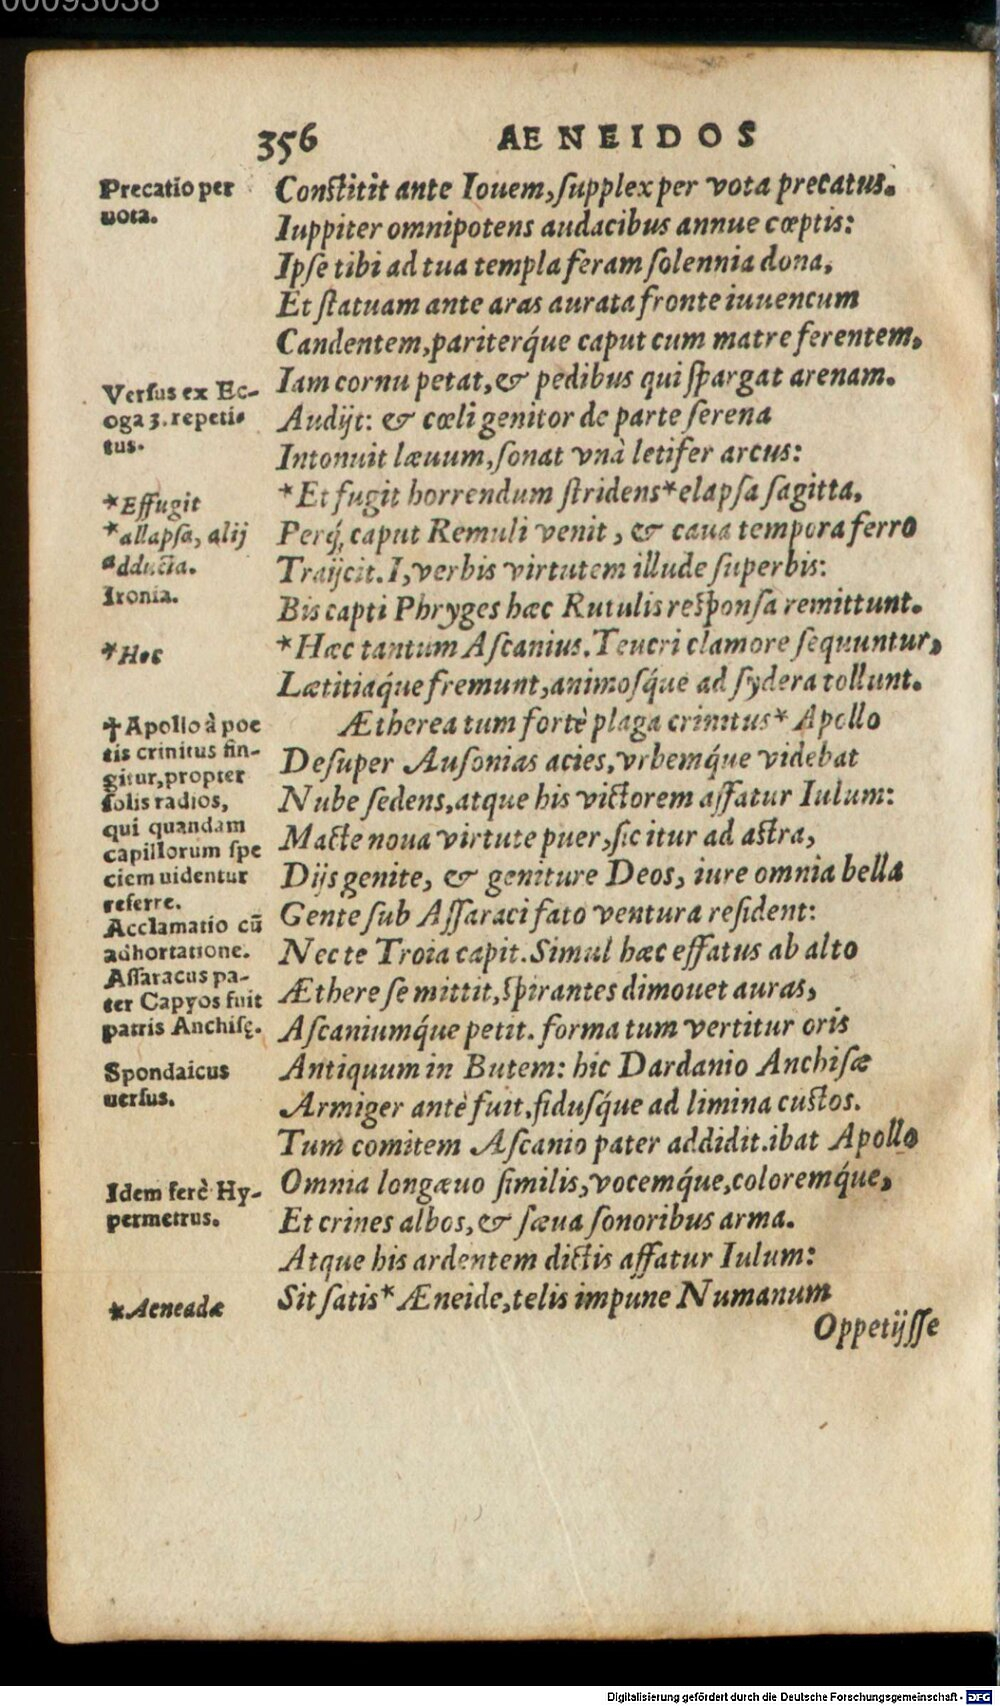 00093038
356 AENEIDOS
Precatio per
uota.
Constitit ante Iouem, supplex per vota precatus.
Iuppiter omnipotens audacibus annue cœptis:
Ipse tibi ad tua templa feram solennia dona,
Et statuam ante aras aurata fronte iuuencum
Candentem, pariterq́ue caput cum matre ferentem,
Versus ex Ec-
oga 3. repeti-
tus.
Iam cornu petat, & pedibus qui spargat arenam.
Audijt: & cœli genitor de parte serena
Intonuit læuum, sonat vnà letifer arcus:
*Effugit
*allapsa, alij
adducta.
Ironia.
*Et fugit horrendum stridens* elapsa sagitta,
Perq́; caput Remuli venit, & caua tempora ferro
Traijcit. I, verbis virtutem illude superbis:
Bis capti Phryges hæc Rutulis responsa remittunt.
*Hoc
*Hæc tantum Ascanius. Teucri clamore sequuntur,
Lætitiaq́ue fremunt, animosq́ue ad sydera tollunt.
✝Apollo à poe
tis crinitus fin-
gitur, propter
solis radios,
qui quandam
capillorum spe
ciem uidentur
referre.
Ætherea tum fortè plaga crinitus* Apollo
Desuper Ausonias acies, vrbemq́ue videbat
Nube sedens, atque his victorem affatur Iulum:
Macte noua virtute puer, sic itur ad astra,
Dijs genite, & geniture Deos, iure omnia bella
Acclamatio cũ
adhortatione.
Assaracus pa-
ter Capyos fuit
patris Anchisę.
Gente sub Assaraci fato ventura resident:
Nec te Troia capit. Simul hæc effatus ab alto
Æthere se mittit, spirantes dimouet auras,
Ascaniumq́ue petit. forma tum vertitur oris
Spondaicus
uersus.
Antiquum in Butem: hic Dardanio Anchisæ
Armiger antè fuit, fidusq́ue ad limina custos.
Tum comitem Ascanio pater addidit. ibat Apollo
Idem ferè Hy-
permetrus.
Omnia longæuo similis, vocemq́ue, coloremq́ue,
Et crines albos, & sæua sonoribus arma.
Atque his ardentem dictis affatur Iulum:
*Aeneadæ
Sit satis* Æneide, telis impune Numanum
Oppetijsse
Digitalisierung gefördert durch die Deutsche Forschungsgemeinschaft - DFG